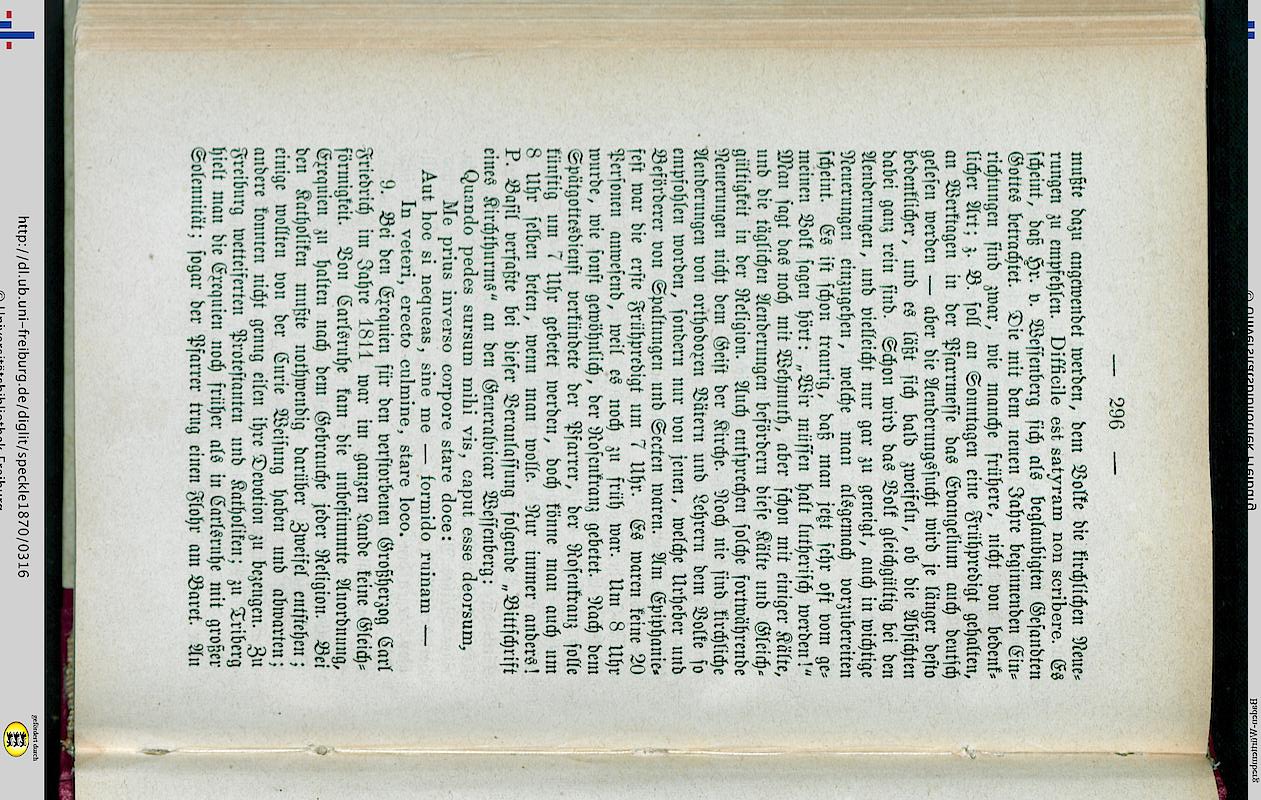 — 296 —
mußte dazu angewendet werden, dem Volke die kirchlichen Neue-
rungen zu empfehlen. Difficile est satyram non scribere. Es
scheint, daß Hr. v. Wessenberg sich als beglaubigten Gesandten
Gottes betrachtet. Die mit dem neuen Jahre beginnenden Ein-
richtungen sind zwar, wie manche frühere, nicht von bedenk-
licher Art; z. B. soll an Sonntagen eine Frühpredigt gehalten,
an Werktagen in der Pfarrmesse das Evangelium auch deutsch
gelesen werden — aber die Aenderungssucht wird je länger desto
bedenklicher, und es läßt sich bald zweifeln, ob die Absichten
dabei ganz rein sind. Schon wird das Volk gleichgültig bei den
Aenderungen, und vielleicht nur gar zu geneigt, auch in wichtige
Neuerungen einzugehen, welche man alsgemach vorzubereiten
scheint. Es ist schon traurig, daß man jetzt sehr oft vom ge-
meinen Volk sagen hört: „Wir müssen halt lutherisch werden!“
Man sagt das noch mit Wehmuth, aber schon mit einiger Kälte,
und die täglichen Aenderungen befördern diese Kälte und Gleich-
gültigkeit in der Religion. Auch entsprechen solche fortwährende
Neuerungen nicht dem Geist der Kirche. Noch nie sind kirchliche
Aenderungen von orthodoxen Vätern und Lehrern dem Volke so
empfohlen worden, sondern nur von jenen, welche Urheber und
Beförderer von Spaltungen und Secten waren. Am Epiphanie-
fest war die erste Frühpredigt um 7 Uhr. Es waren keine 20
Personen anwesend, weil es noch zu früh war. Um 8 Uhr
wurde, wie sonst gewöhnlich, der Rosenkranz gebetet. Nach dem
Spätgottesdienst verkündete der Pfarrer, der Rosenkranz solle
künftig um 7 Uhr gebetet werden, doch könne man auch um
8 Uhr selben beten, wenn man wolle. Nur immer anders!
P. Basil verfaßte bei dieser Veranlassung folgende „Bittschrift
eines Kirchthurms“ an den Generalvicar Wessenberg:
Quando pedes sursum mihi vis, caput esse deorsum,
Me prius inverso corpore stare doce:
Aut hoc si nequeas, sine me — formido ruinam —
In veteri, erecto culmine, stare loco.
9. Bei den Exequien für den verstorbenen Großherzog Carl
Friedrich im Jahre 1811 war im ganzen Lande keine Gleich-
förmigkeit. Von Carlsruhe kam die unbestimmte Anordnung,
Exequien zu halten nach dem Gebrauche jeder Religion. Bei
den Katholiken mußte nothwendig darüber Zweifel entstehen;
einige wollten von der Curie Weisung haben und abwarten;
andere konnten nicht genug eilen ihre Devotion zu bezeugen. Zu
Freiburg wetteiferten Protestanten und Katholiken; zu Triberg
hielt man die Exequien noch früher als in Carlsruhe mit großer
Solemnität; sogar der Pfarrer trug einen Flohr an Baret. An
http://dl.ub.uni-freiburg.de/diglit/speckle1870/0316
© Universitätsbibliothek Freiburg
gefördert durch